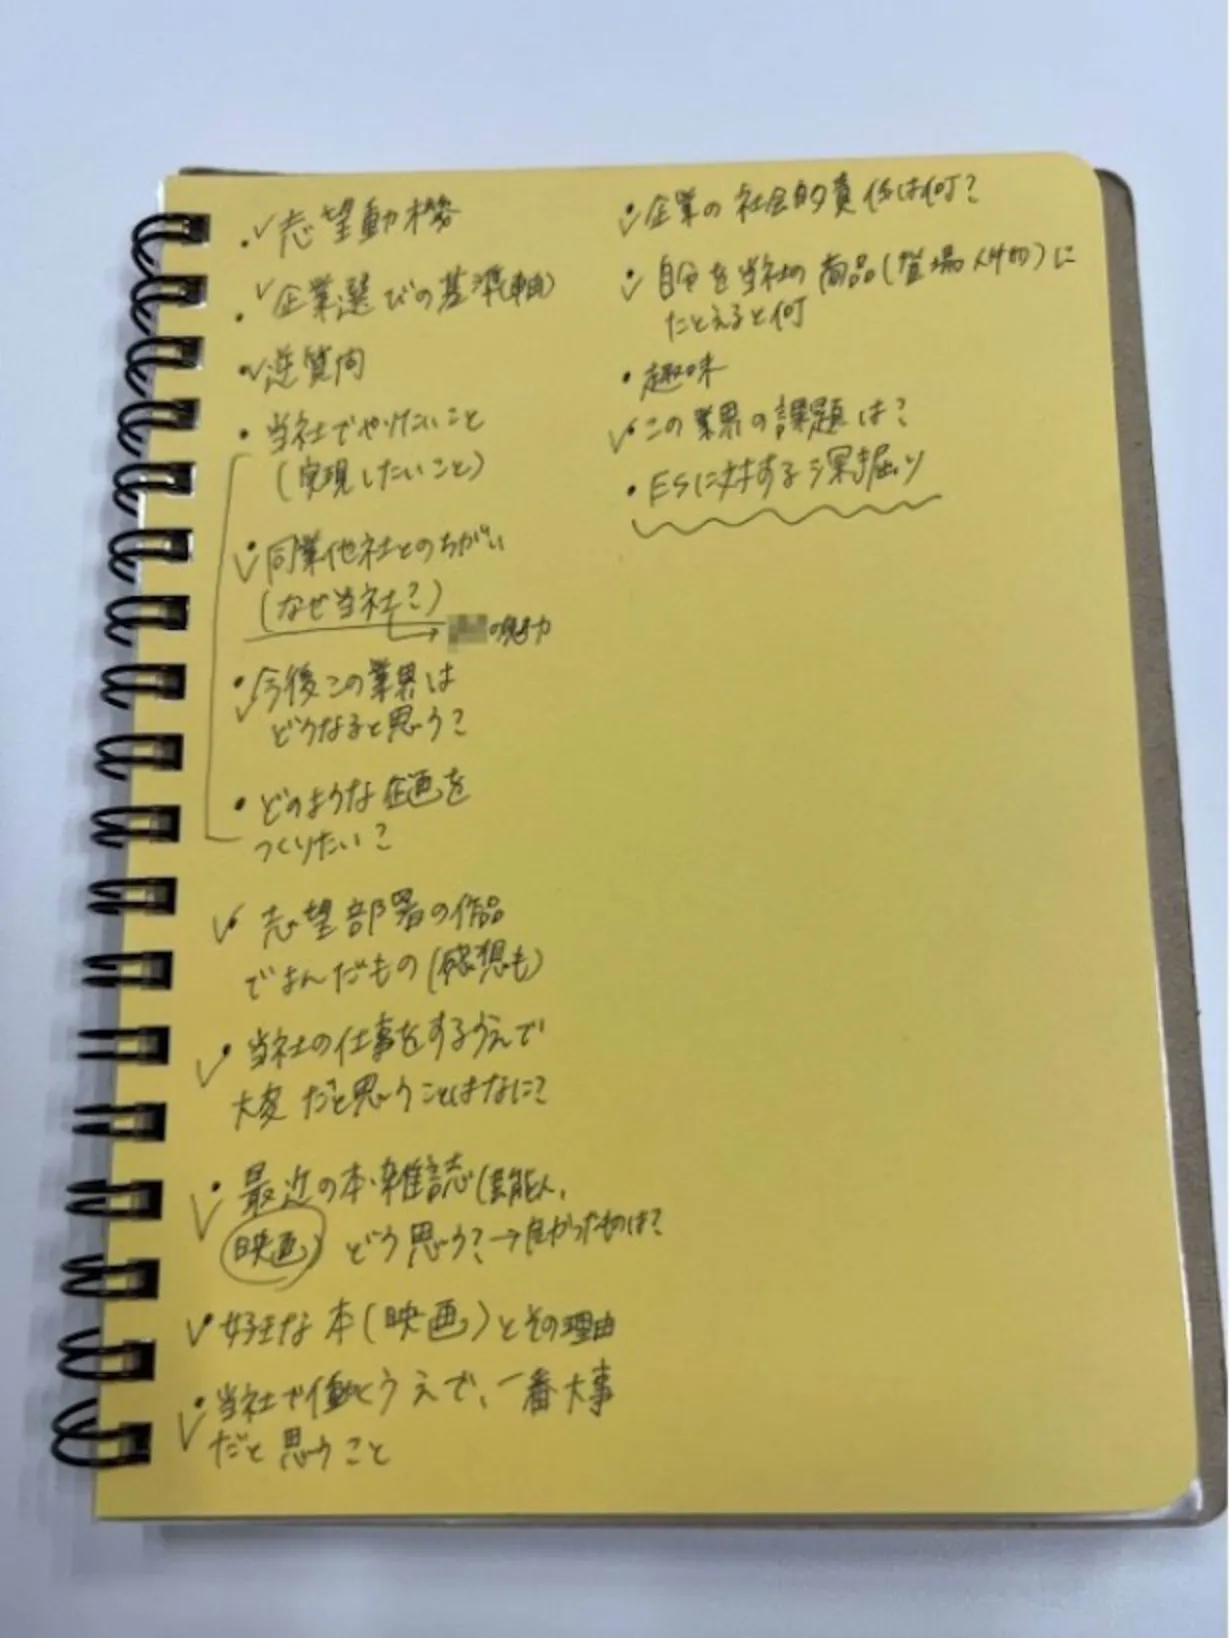 ・✓志望動機
・✓企業選びの基準(軸)
・✓逆質問
・当社でやりたいこと
(実現したいこと)
・✓同業他社とのちがい
(なぜ当社?)
→ の魅力
・✓今後この業界は
どうなると思う?
・どのような企画を
つくりたい?
✓・志望部署の作品
でよんだもの(感想も)
✓・当社の仕事をするうえで
大変だと思うことはなに?
✓・最近の本・雑誌(芸能人、
映画)どう思う?→良かったものは?
✓・好きな本(映画)とその理由
✓・当社で働くうえで、一番大事
だと思うこと
・✓企業の社会的責任は何?
・✓自分を当社の商品(登場人物)に
たとえると何
・趣味
✓・この業界の課題は?
・ESに対する深掘り